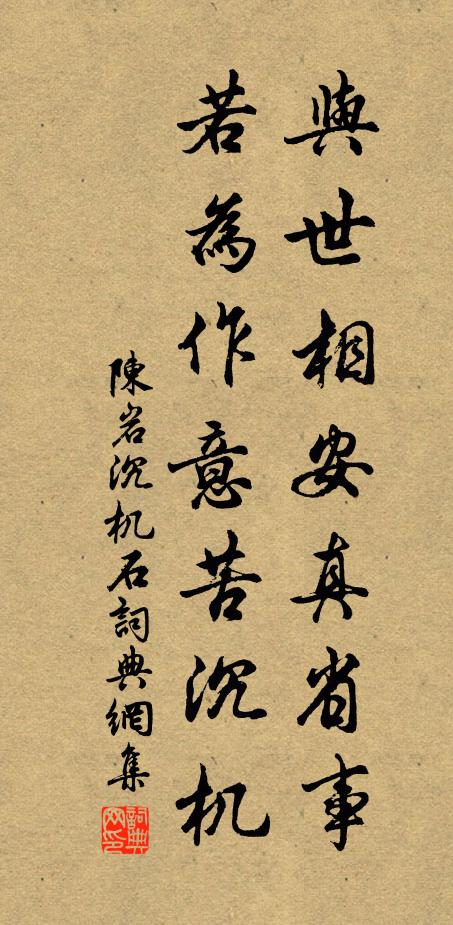 與世相安真省事
若為作意苦沉机
陳岩沉机石詞典網集
詞典網印